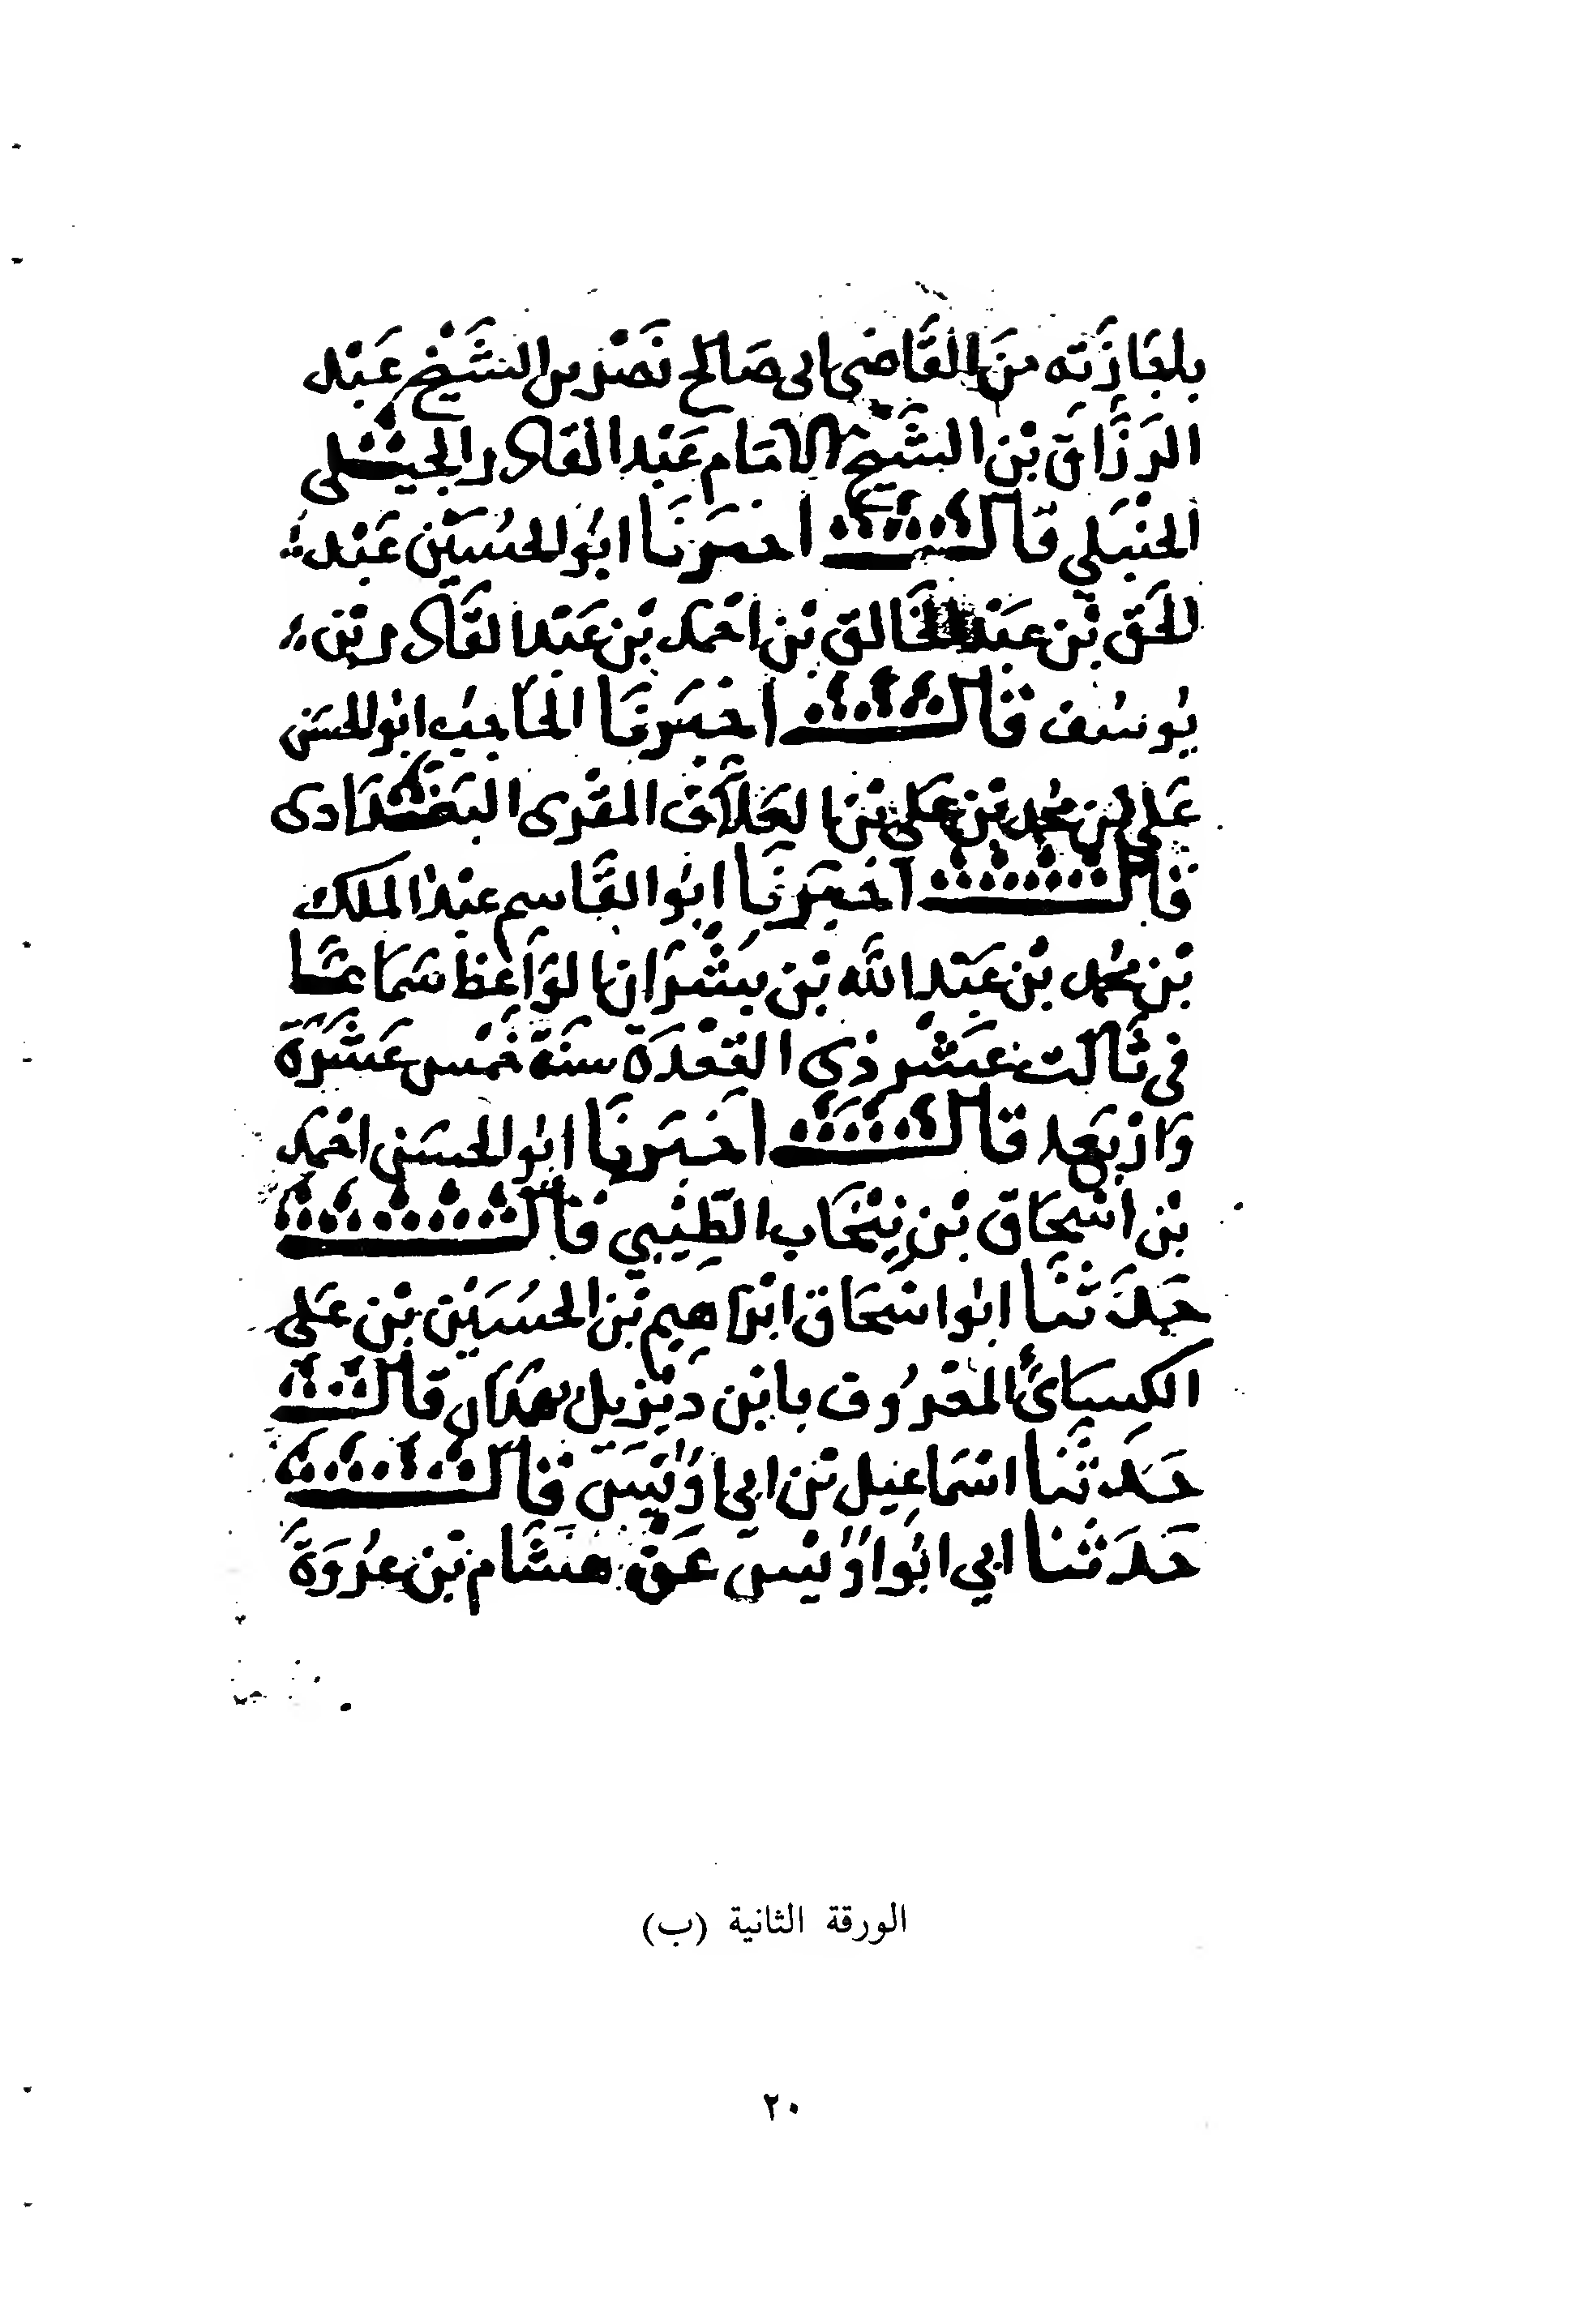 بإجازته من القاضي ابي صالح نصر بن الشيخ عبد
الرزاق بن الشيخ الامام عبد القادر الجيلي
الحنبلي قال اخبرنا ابو الحسين عبد
الحق بن عبد الخالق بن احمد بن عبد القادر بن
يوسف قال اخبرنا الحاجب ابو الحسن
علي بن محمد بن علي بن العلاف المقرى البغدادى
قال اخبرنا ابو القاسم عبد الملك
بن محمد بن عبد الله بن بشران الواعظ سماعا
في ثالث عشر ذي القعدة سنة خمس عشرة
واربعمه قال اخبرنا ابو الحسن احمد
بن اسحاق بن نيخاب الطيبي قال
حدثنا ابو اسحاق ابراهيم بن الحسين بن علي
الكسائي المعروف بابن ديزيل بهمدان قال
حدثنا اسماعيل بن ابي اويس قال
حدثنا ابي ابو اويس عن هشام بن عروة
الورقة الثانية (ب)
٢٠